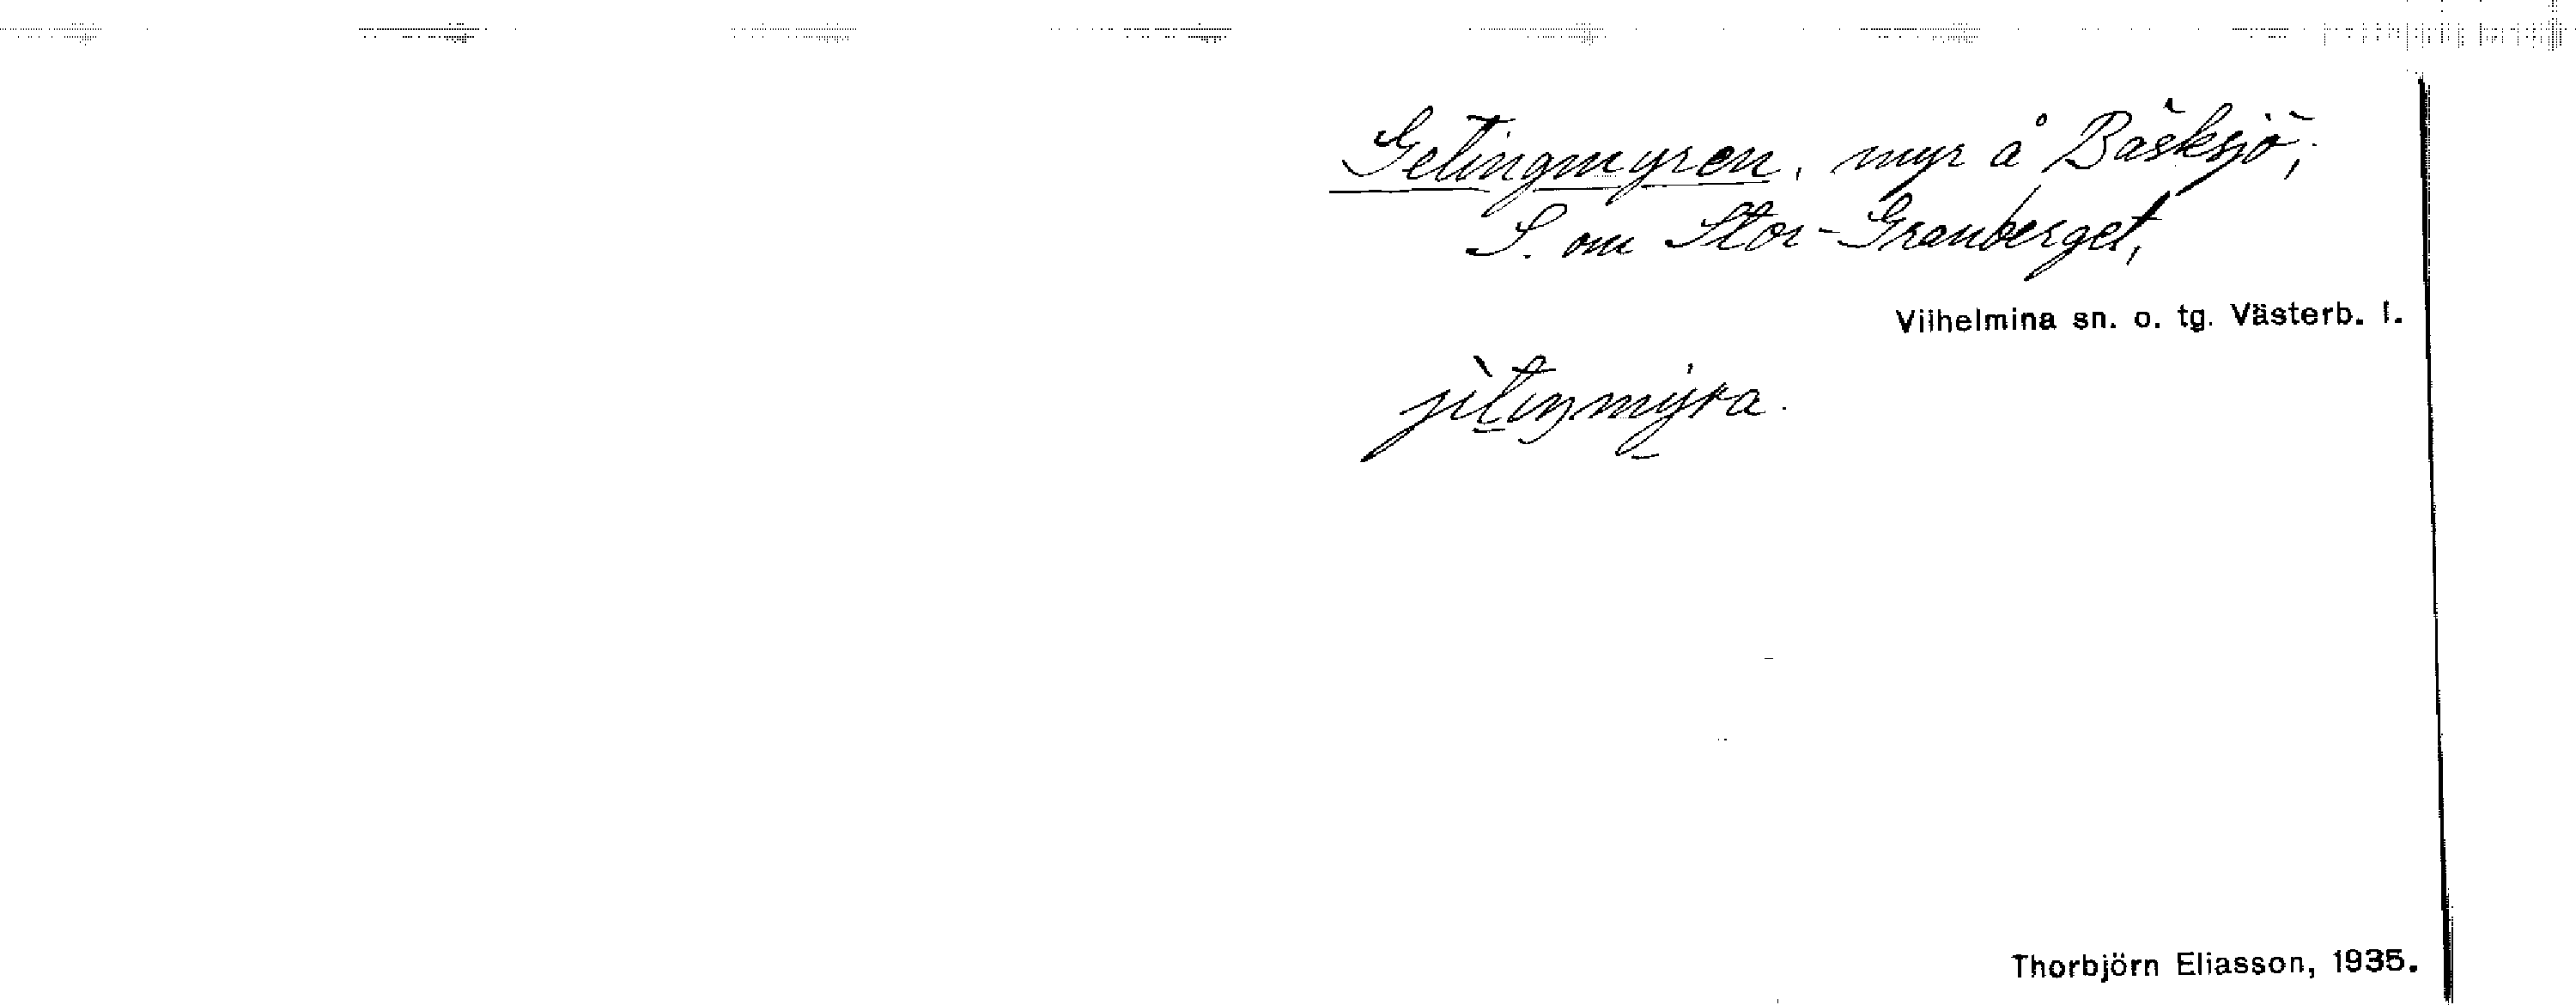 Getingmyren, myr å Bäsksjö;
S. om Stor-Granberget,
Vilhelmina sn. o. tg. Västerb. l.
jìtiŋmyra.
Thorbjörn Eliasson, 1935.